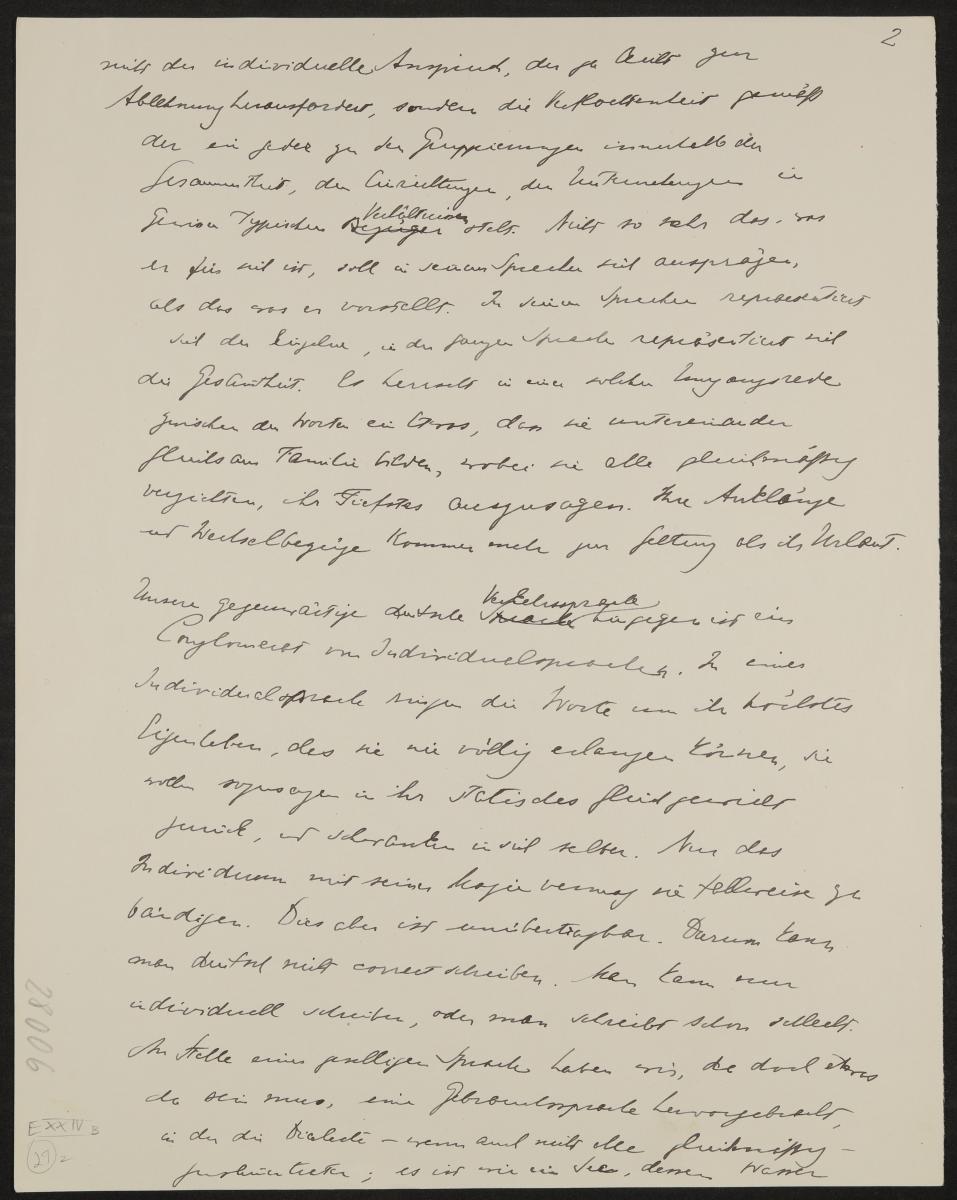 2
nicht der individuelle Anspruch, der ja leicht zur
Ablehnung herausfordert, sondern die Verkettenheit gemäß
der ein jeder zu den Gruppierungen innerhalb der
Gesammtheit, den Einrichtungen, den Unternehmungen in
gewissen typischen Bezügen Verhältnissen steht. Nicht so sehr das, was
er für sich ist, soll in seinem Sprechen sich ausprägen,
als das was er vorstellt. In seinem Sprechen repraesentiert
sich der Einzelne, in der ganzen Sprache repräsentiert sich
die Gesamtheit. Es herrscht in einer solchen Umgangsrede
zwischen den Worten ein, dass sie untereinander
gleichsam Familie bilden, wobei sie alle gleichmässig
verzichten, ihr Tiefstes auszusagen. Ihre Anklänge
und Wechselbezüge kommen mehr zur Geltung als ihr Urlaut.
Unsere gegenwärtige deutsche Sprache Verkehrssprache hingegen ist ein
Conglomerat von Individualsprachen. In einer
Individualsprache ringen die Worte um ihr höchstes
Eigenleben, das sie nie völlig erlangen können, sie
wollen sozusagen in ihr statisches Gleichgewicht
zurück, und schwanken in sich selber. Nur das
Individuum mit seiner Magie vermag sie teilweise zu
bändigen. Dies aber ist unübertragbar. Darum kann
man deutsch nicht correct schreiben. Man kann nur
individuell schreiben, oder man schreibt schon schlecht.
An Stelle einer geselligen Sprache haben wir, da doch etwas
da sein muss, eine Gebrauchssprache hervorgebracht,
in der die Dialecte – wenn auch nicht alle gleichmässig –
; es ist wie ein See, dessen Wasser
28006
E XXIV B
21
2